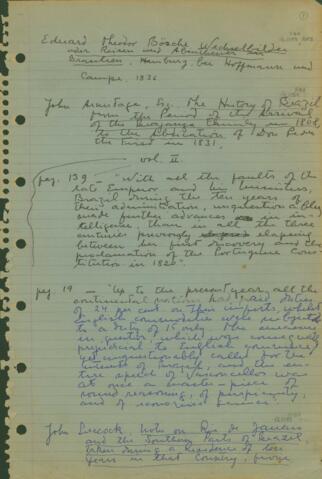 Eduard Theodor Bösche Wechselbilder
oder Reisen und Abentheuer in
Brasilien, Hamburg, bei Hoffmann und
Campe, 1836
John Armitage, Esq. The History of Brazil
from the Period of the Arrival
of the Braganza Family in 1808,
to the Abdication of Don Pedro
the First in 1831.
vol. II
pag. 139 — "With all the faults of the
late Emperor and his ministers,
Brazil during the ten years of
their administration, unquestionably
made further advances in in-
telligence, than in all the three
centuries previously elapsing
between her first discovery and the
proclamation of the Portuguese Cons-
titution in 1820"
pag 19 — "Up to the present year, all the
continental nations had paid duties
of 24 per cent on their imports, whilst
English commodities were subjected
to a duty of 15 only. The measure
in question which was
prejudicial to English commerce
yet unquestionably called for the
interest of Brazil, and the
speech of Vasconcellos was
at once a master-piece of
sound reasoning, of perspicuity,
and of
John Luccock, Notes on Rio de Janeiro
and the Southern Parts of Brazil
taken during a residence of ten
years in that Country, from